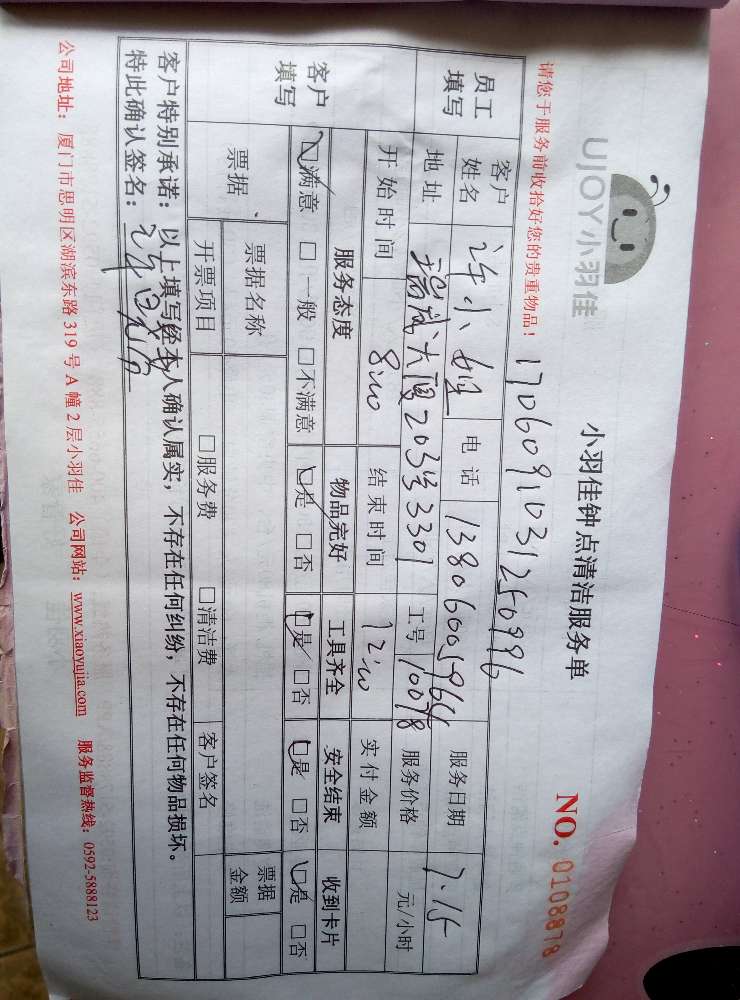 UJOY小羽佳
小羽佳钟点清洁服务单
NO. 0108878
请您于服务前收拾好您的贵重物品！
170609103125099 6
员工填写 客户姓名 许小姐 电话 13806005964 服务日期 7.15
地址 瑞成大厦203号3301 工号 10078 服务价格 元/小时
客户填写 开始时间 8:00 结束时间 12:00 实付金额
服务态度 物品完好 工具齐全 安全结束 收到卡片
☑满意 □一般 □不满意 ☑是 □否 ☑是 □否 ☑是 □否 ☑是 □否
票据 票据名称 票据金额
开票项目 □服务费 □清洁费 客户签名
客户特别承诺：以上填写经本人确认属实，不存在任何纠纷，不存在任何物品损坏。
特此确认签名：
公司地址：厦门市思明区湖滨东路319号A幢2层小羽佳 公司网站：www.xiaoyujia.com 服务监督热线：0592-5888123